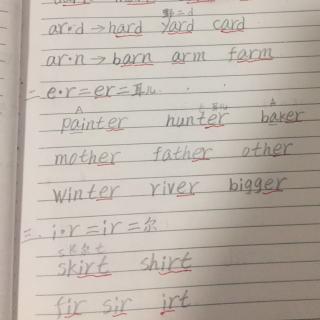 ar·d→hard yard card
ar·n→barn arm farm
二 e·r=er=耳儿
painter hunter baker
mother father other
winter river bigger
三、i·r=ir=尔
skirt shirt
fir sir irt